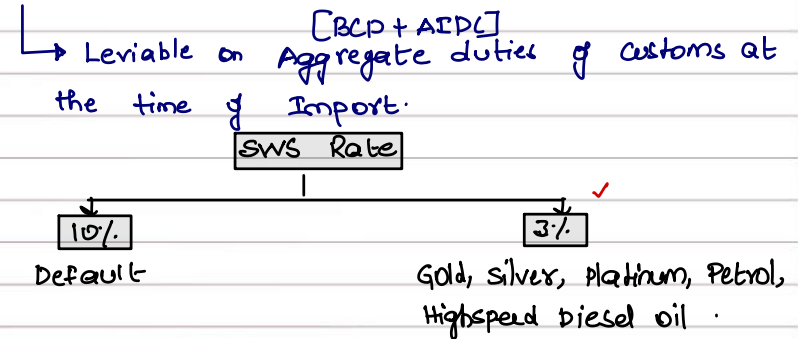 [BCD + AIDC]
Leviable on Aggregate duties of customs at
the time of Import.
SWS Rate
10%.
3%.
Default
Gold, Silver, Platinum, Petrol,
Highspeed Diesel oil .